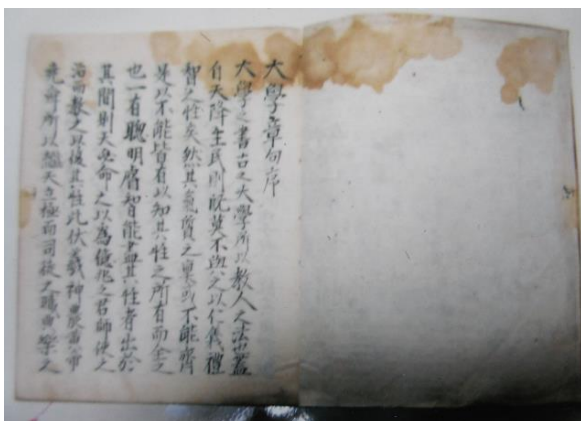 大學章句序
大學之書古之大學所以教人之法也蓋
自天降生民則既莫不與之以仁義禮
智之性矣然其氣質之稟或不能齊
是以不能皆有以知其性之所有而全之
也一有聰明睿智能盡其性者出於
其間則天必命之以為億兆之君師使之
治而教之以復其性此伏羲神農黃帝
堯舜所以繼天立極而司徒之職典樂之